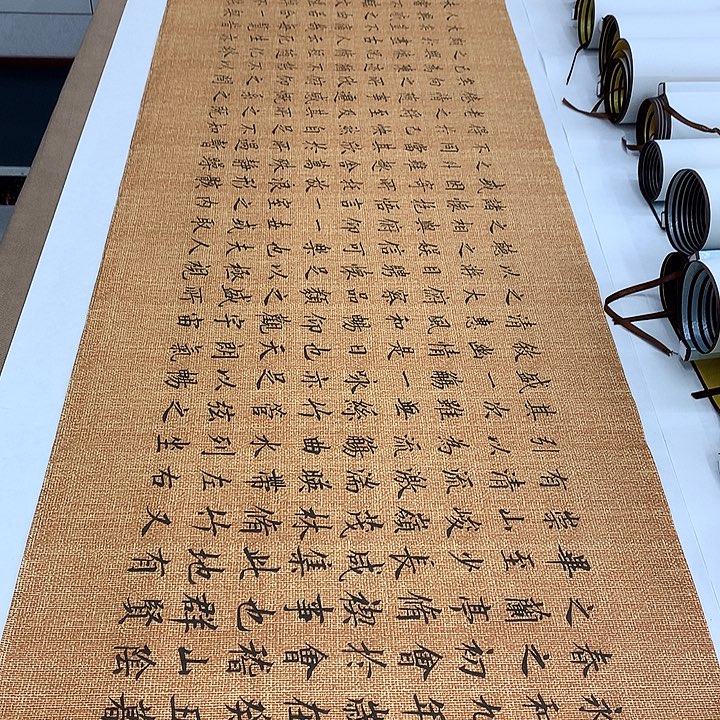 和九年歲在癸丑暮
春之初會於會稽山陰
之蘭亭脩禊事也群賢
畢至少長咸集此地有
崇山峻領茂林脩竹又
有清流激湍暎帶左右
引以為流觴曲水列坐
其次雖無絲竹管弦之
盛一觴一詠亦足以暢
敘幽情是日也天朗氣
清惠風和暢仰觀宇宙
之大俯察品類之盛所
以遊目騁懷足以極視
聽之娛信可樂也夫人
之相與俯仰一世或取
諸懷抱悟言一室之內
或因寄所託放浪形骸
之外雖趣舍萬殊靜躁
不同當其欣於所遇暫
得於己怏然自足不知
老之將至及其所之既